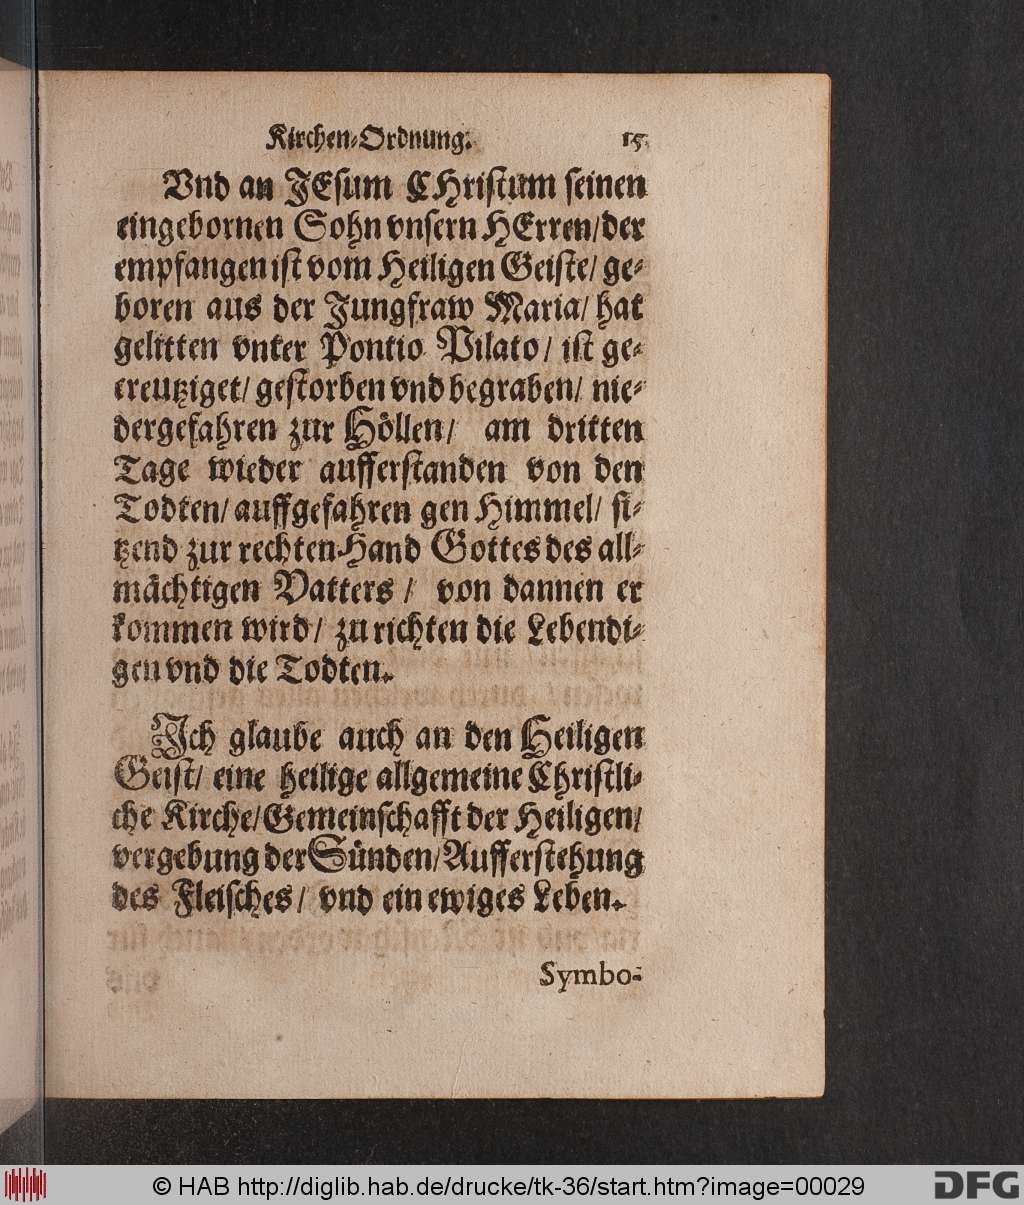 Kirchen-Ordnung. 15.
Vnd an JEsum CHristum seinen
eingebornen Sohn vnsern HErren/ der
empfangen ist vom Heiligen Geiste/ ge-
boren aus der Jungfraw Maria/ hat
gelitten vnter Pontio Pilato/ ist ge-
creutziget/ gestorben vnd begraben/ nie-
dergefahren zur Höllen/ am dritten
Tage wieder aufferstanden von den
Todten/ auffgefahren gen Himmel/ si-
tzend zur rechten Hand Gottes des all-
mächtigen Vatters/ von dannen er
kommen wird/ zu richten die Lebendi-
gen vnd die Todten.
Ich glaube auch an den Heiligen
Geist/ eine heilige allgemeine Christli-
che Kirche/ Gemeinschafft der Heiligen/
vergebung der Sünden/ Aufferstehung
des Fleisches/ vnd ein ewiges Leben.
Symbo-
© HAB http://diglib.hab.de/drucke/tk-36/start.htm?image=00029
DFG